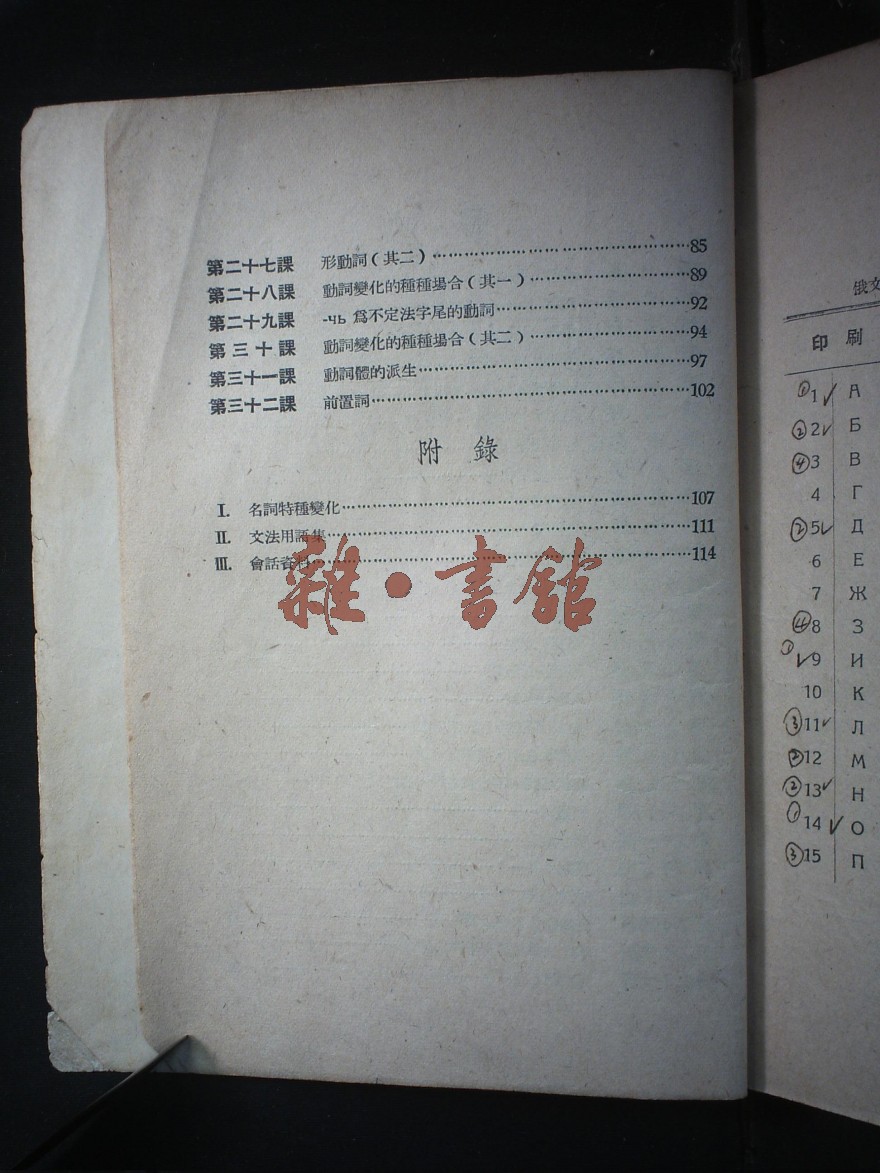 第二十七課 形動詞(其二)……85
第二十八課 動詞變化的種種場合(其一)……89
第二十九課 -чь 爲不定法字尾的動詞……92
第三十課 動詞變化的種種場合(其二)……94
第三十一課 動詞體的派生……97
第三十二課 前置詞……102
附錄
I. 名詞特種變化……107
II. 文法用語集……111
III. 會話資料……114
雜·書館
俄文
印刷
① 1 ✓ А
② 2 ✓ Б
④ 3 В
4 Г
② 5 ✓ Д
6 Е
7 Ж
④ 8 З
① ✓ 9 И
10 К
③ 11 ✓ Л
② 12 М
② 13 ✓ Н
① 14 ✓ О
③ 15 П